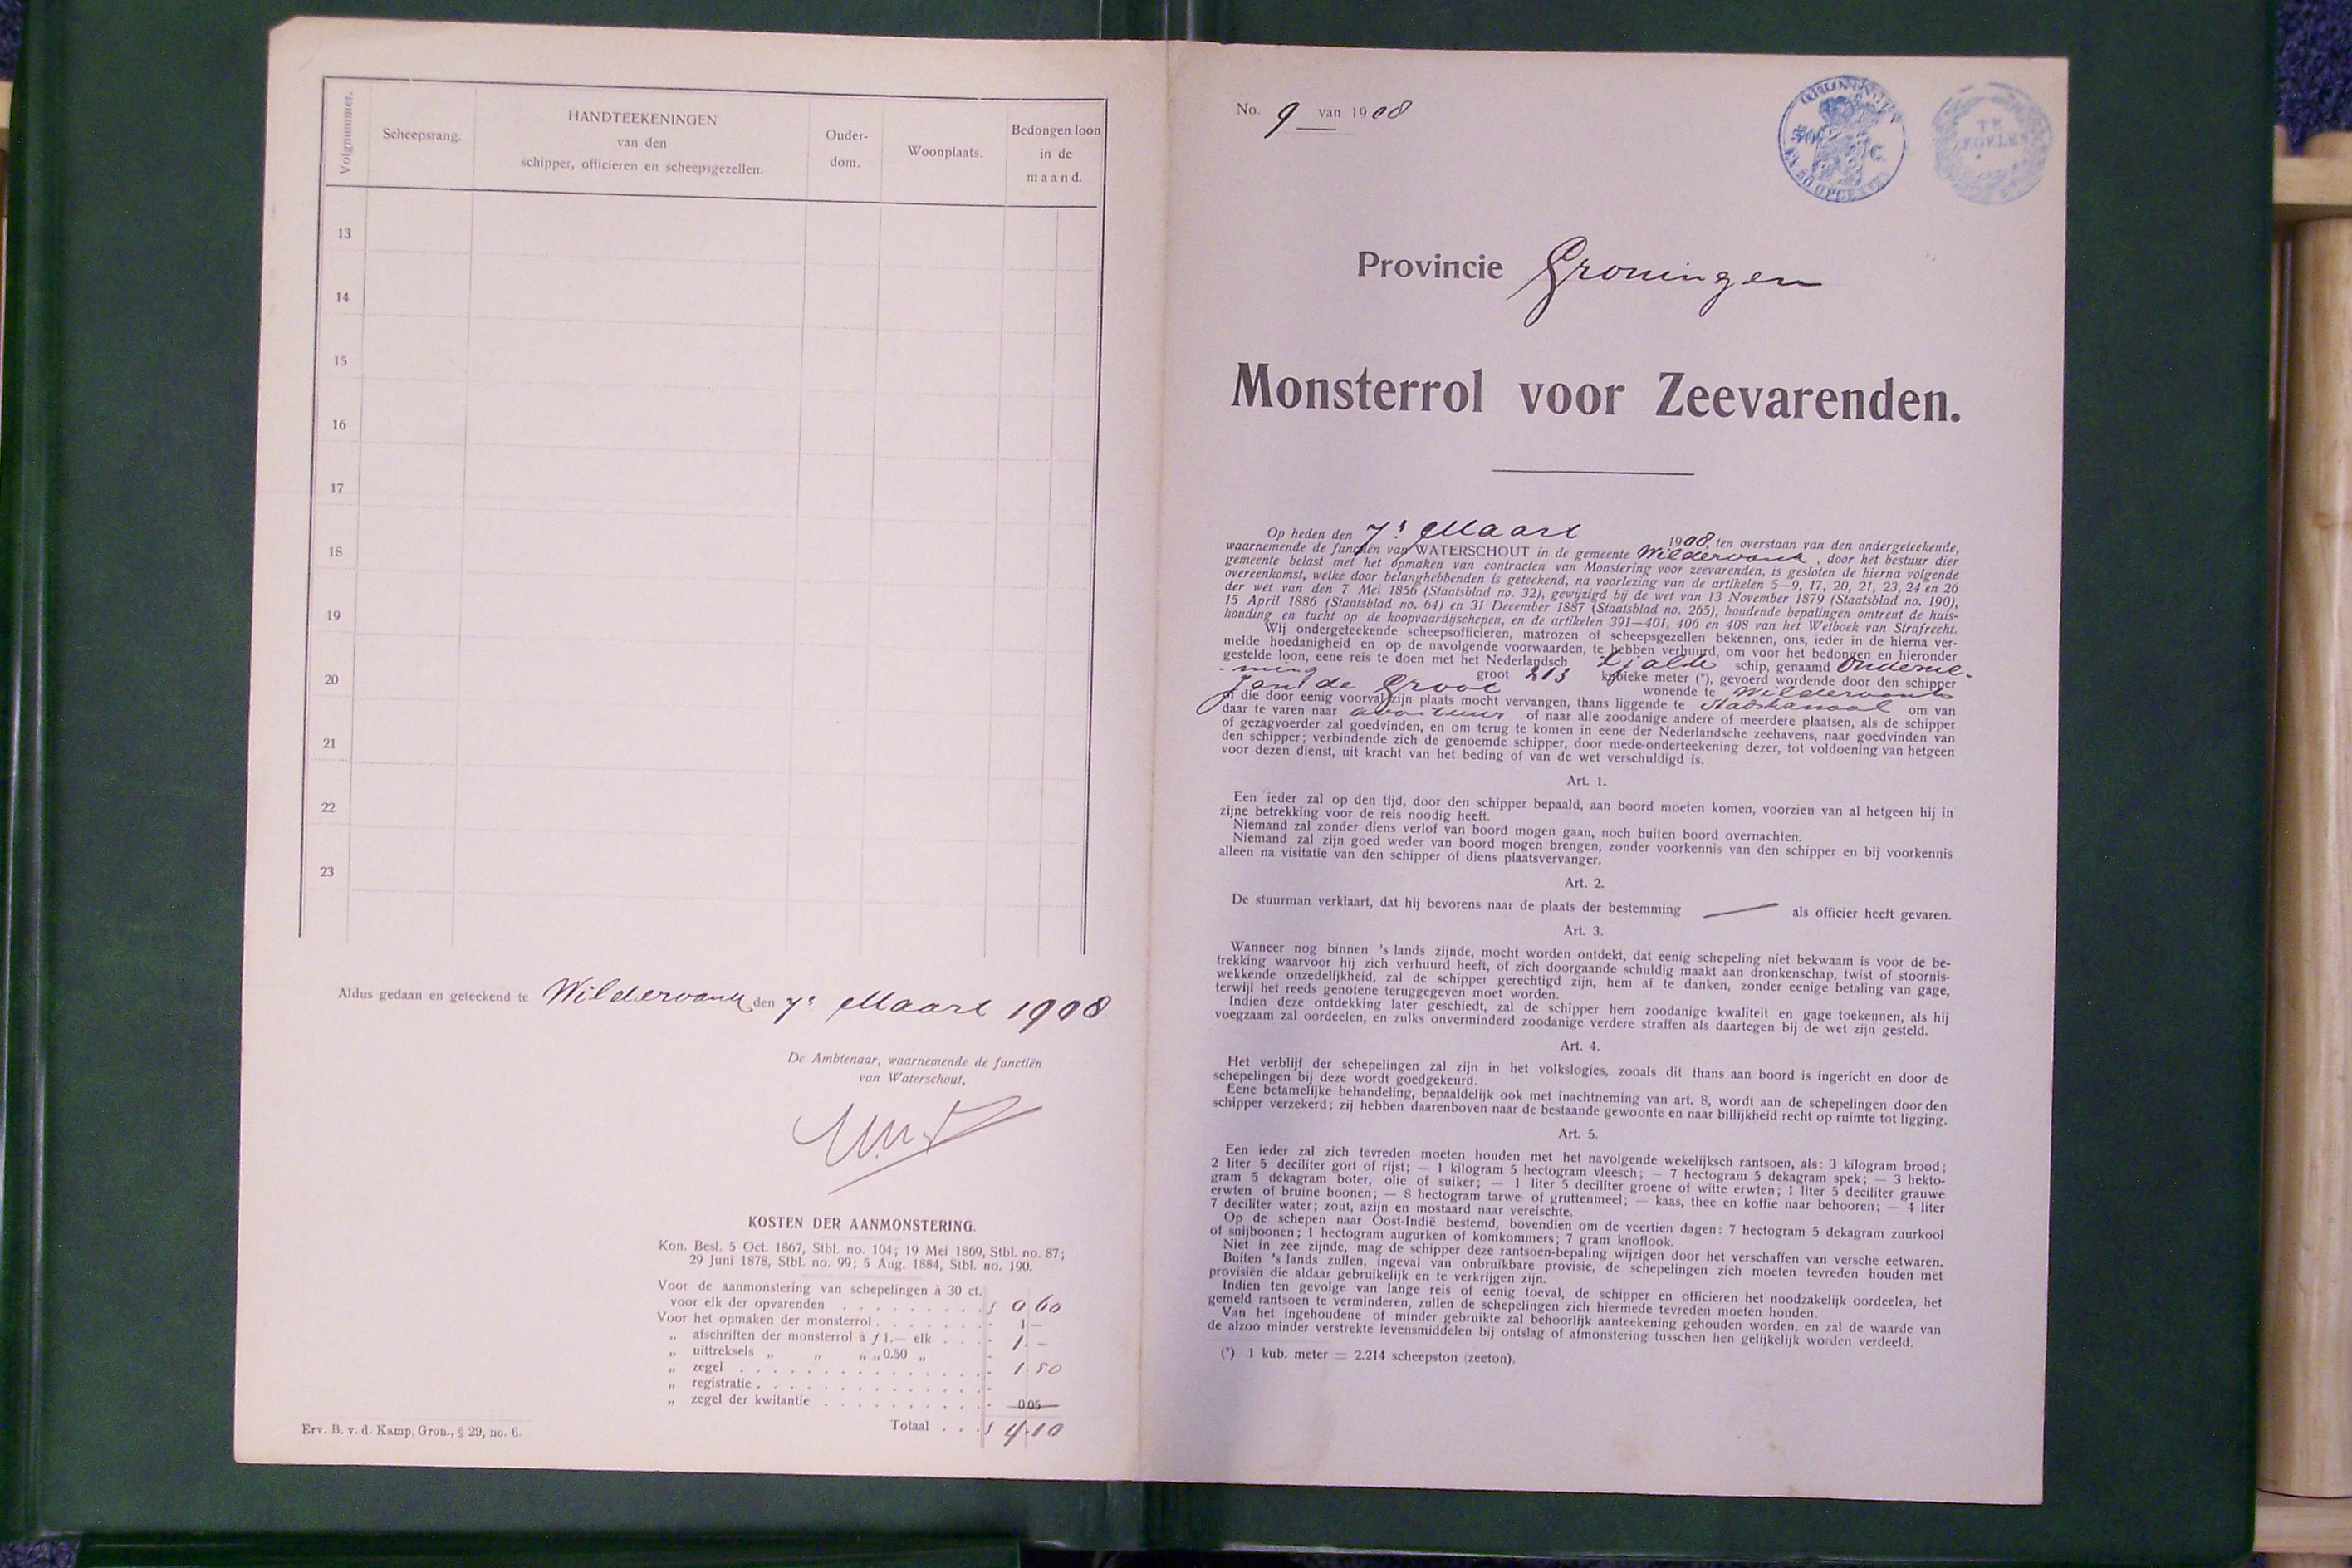 Volgnummer.
Scheepsrang.
HANDTEEKENINGEN
van den
schipper, officieren en scheepsgezellen.
Ouder-
dom.
Woonplaats.
Bedongen loon
in de
maand.
13
14
15
16
17
18
19
20
21
22
23
Aldus gedaan en geteekend te Wildervank den 7e Maart 1908
De Ambtenaar, waarnemende de functiën
van Waterschout,
KOSTEN DER AANMONSTERING.
Kon. Besl. 5 Oct. 1867, Stbl. no. 104; 19 Mei 1869, Stbl. no. 87;
29 Juni 1878, Stbl. no. 99; 5 Aug. 1884, Stbl. no. 190.
Voor de aanmonstering van schepelingen à 30 ct.
voor elk der opvarenden . . . . . . . . . f 0 60
Voor het opmaken der monsterrol . . . . . . . - 1 —
„ afschriften der monsterrol à f 1.— elk . . . . - 1. -
„ uittreksels „ „ „ „ 0.50 „ -
„ zegel . . . . . . . . . . . . . . . - 1.50
„ registratie . . . . . . . . . . . . . . -
„ zegel der kwitantie . . . . . . . . . . - 0.05
Totaal . . . f 4.10
Erv. B. v. d. Kamp, Gron., § 29, no. 6.
No. 9 van 1908
TE
ZEGELEN
Provincie Groningen
Monsterrol voor Zeevarenden.
Op heden den 7e Maart 1908, ten overstaan van den ondergeteekende,
waarnemende de functiën van WATERSCHOUT in de gemeente Wildervank, door het bestuur dier
gemeente belast met het opmaken van contracten van Monstering voor zeevarenden, is gesloten de hierna volgende
overeenkomst, welke door belanghebbenden is geteekend, na voorlezing van de artikelen 5—9, 17, 20, 21, 23, 24 en 26
der wet van den 7 Mei 1856 (Staatsblad no. 32), gewijzigd bij de wet van 13 November 1879 (Staatsblad no. 190),
15 April 1886 (Staatsblad no. 64) en 31 December 1887 (Staatsblad no. 265), houdende bepalingen omtrent de huis-
houding en tucht op de koopvaardijschepen, en de artikelen 391—401, 406 en 408 van het Wetboek van Strafrecht.
Wij ondergeteekende scheepsofficieren, matrozen of scheepsgezellen bekennen, ons, ieder in de hierna ver-
melde hoedanigheid en op de navolgende voorwaarden, te hebben verhuurd, om voor het bedongen en hieronder
gestelde loon, eene reis te doen met het Nederlandsch tjalk schip, genaamd Onderne-
ming groot 213 kubieke meter (*), gevoerd wordende door den schipper
Jan de Groot wonende te Wildervank
of die door eenig voorval zijn plaats mocht vervangen, thans liggende te Stadskanaal om van
daar te varen naar avontuur of naar alle zoodanige andere of meerdere plaatsen, als de schipper
of gezagvoerder zal goedvinden, en om terug te komen in eene der Nederlandsche zeehavens, naar goedvinden van
den schipper; verbindende zich de genoemde schipper, door mede-onderteekening dezer, tot voldoening van hetgeen
voor dezen dienst, uit kracht van het beding of van de wet verschuldigd is.
Art. 1.
Een ieder zal op den tijd, door den schipper bepaald, aan boord moeten komen, voorzien van al hetgeen hij in
zijne betrekking voor de reis noodig heeft.
Niemand zal zonder diens verlof van boord mogen gaan, noch buiten boord overnachten.
Niemand zal zijn goed weder van boord mogen brengen, zonder voorkennis van den schipper en bij voorkennis
alleen na visitatie van den schipper of diens plaatsvervanger.
Art. 2.
De stuurman verklaart, dat hij bevorens naar de plaats der bestemming — als officier heeft gevaren.
Art. 3.
Wanneer nog binnen 's lands zijnde, mocht worden ontdekt, dat eenig schepeling niet bekwaam is voor de be-
trekking waarvoor hij zich verhuurd heeft, of zich doorgaande schuldig maakt aan dronkenschap, twist of stoornis-
wekkende onzedelijkheid, zal de schipper gerechtigd zijn, hem af te danken, zonder eenige betaling van gage,
terwijl het reeds genotene teruggegeven moet worden.
Indien deze ontdekking later geschiedt, zal de schipper hem zoodanige kwaliteit en gage toekennen, als hij
voegzaam zal oordeelen, en zulks onverminderd zoodanige verdere straffen als daartegen bij de wet zijn gesteld.
Art. 4.
Het verblijf der schepelingen zal zijn in het volkslogies, zooals dit thans aan boord is ingericht en door de
schepelingen bij deze wordt goedgekeurd.
Eene betamelijke behandeling, bepaaldelijk ook met inachtneming van art. 8, wordt aan de schepelingen door den
schipper verzekerd; zij hebben daarenboven naar de bestaande gewoonte en naar billijkheid recht op ruimte tot ligging.
Art. 5.
Een ieder zal zich tevreden moeten houden met het navolgende wekelijksch rantsoen, als: 3 kilogram brood;
2 liter 5 deciliter gort of rijst; — 1 kilogram 5 hectogram vleesch; — 7 hectogram 5 dekagram spek; — 3 hekto-
gram 5 dekagram boter, olie of suiker; — 1 liter 5 deciliter groene of witte erwten; 1 liter 5 deciliter grauwe
erwten of bruine boonen; — 8 hectogram tarwe- of gruttenmeel; — kaas, thee en koffie naar behooren; — 4 liter
7 deciliter water; zout, azijn en mostaard naar vereischte.
Op de schepen naar Oost-Indië bestemd, bovendien om de veertien dagen: 7 hectogram 5 dekagram zuurkool
of snijboonen; 1 hectogram augurken of komkommers; 7 gram knoflook.
Niet in zee zijnde, mag de schipper deze rantsoen-bepaling wijzigen door het verschaffen van versche eetwaren.
Buiten 's lands zullen, ingeval van onbruikbare provisie, de schepelingen zich moeten tevreden houden met
provisiën die aldaar gebruikelijk en te verkrijgen zijn.
Indien ten gevolge van lange reis of eenig toeval, de schipper en officieren het noodzakelijk oordeelen, het
gemeld rantsoen te verminderen, zullen de schepelingen zich hiermede tevreden moeten houden.
Van het ingehoudene of minder gebruikte zal behoorlijk aanteekening gehouden worden, en zal de waarde van
de alzoo minder verstrekte levensmiddelen bij ontslag of afmonstering tusschen hen gelijkelijk worden verdeeld.
(*) 1 kub. meter = 2.214 scheepston (zeeton).